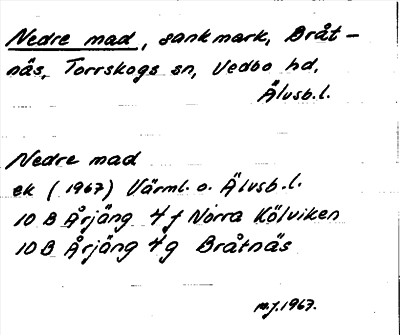 Nedre mad, sankmark, Bråt-
näs, Torrskogs sn, Vedbo hd,
Älvsb.l.
Nedre mad
ek (1967) Värml. o. Älvsb.l.
10 B Årjäng 4 f Norra Kölviken
10 B Årjäng 4 g Bråtnäs
m.j. 1967.